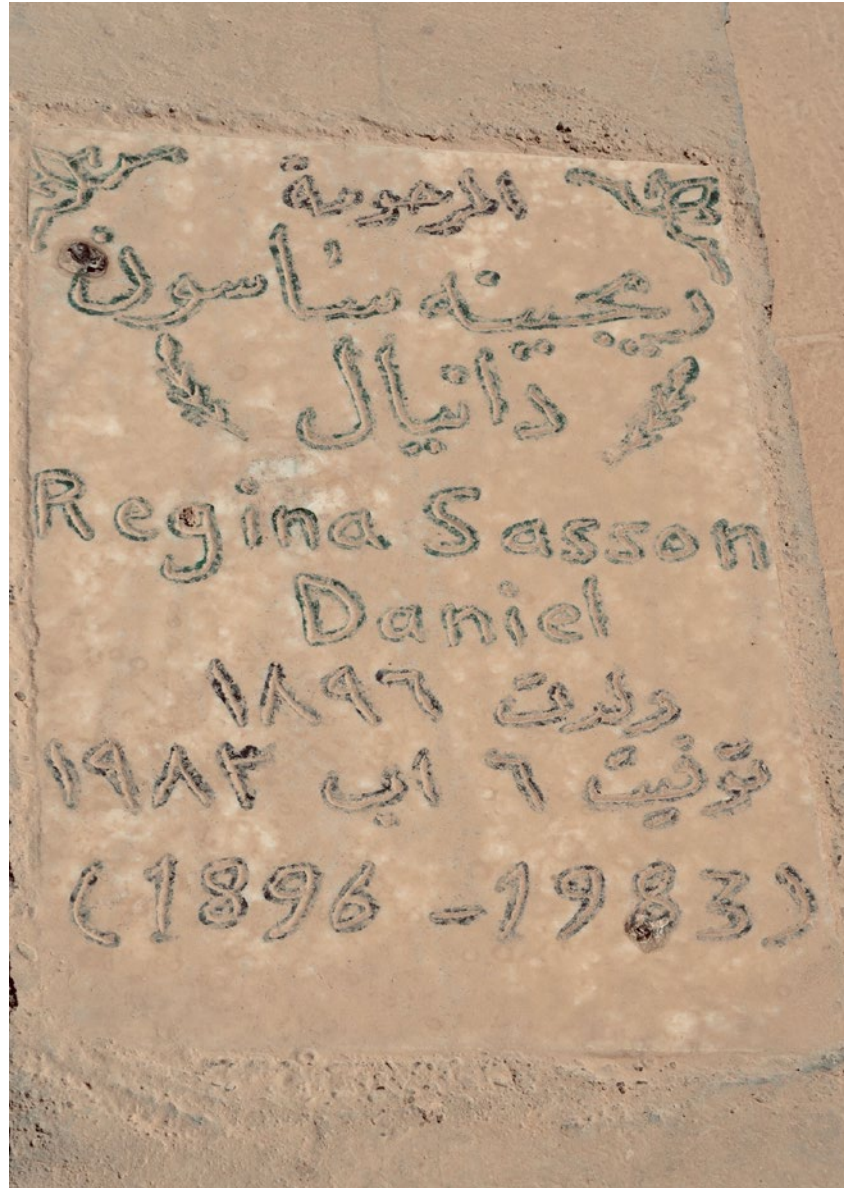 المرحومة
ريجينه ساسون
دانيال
Regina Sasson
Daniel
ولدت ١٨٩٦
توفيت ٦ اب ١٩٨٣
(1896 - 1983)